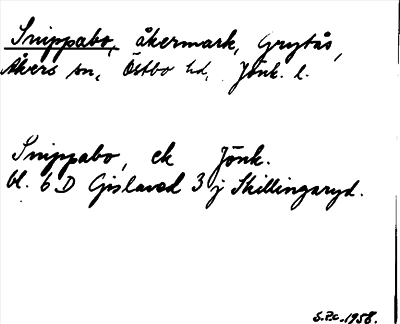 Snippabo, åkermark, Grytås,
Åkers sn, Östbo hd, Jönk. l.
Snippabo, ek Jönk.
bl. 6 D Gislaved 3 j Skillingaryd.
S.Z.c. 1958.